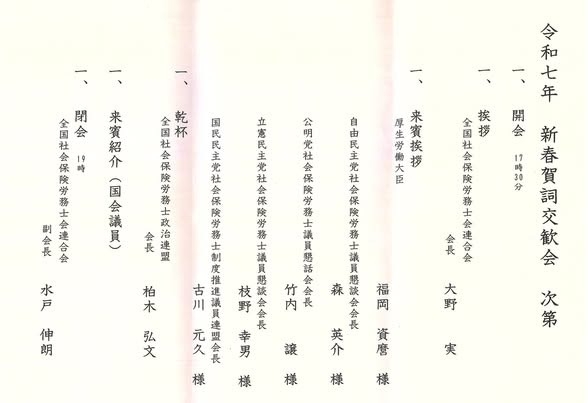 令和七年 新春賀詞交歓会 次第
一、開会 17時30分
一、挨拶
全国社会保険労務士会連合会
会長 大野 実
一、来賓挨拶
厚生労働大臣
福岡 資麿 様
自由民主党社会保険労務士議員懇談会会長
森 英介 様
公明党社会保険労務士議員懇話会会長
竹内 譲 様
立憲民主党社会保険労務士議員懇談会会長
枝野 幸男 様
国民民主党社会保険労務士制度推進議員連盟会長
古川 元久 様
一、乾杯
全国社会保険労務士政治連盟
会長 柏木 弘文
一、来賓紹介（国会議員）
一、閉会 19時
全国社会保険労務士会連合会
副会長 水戸 伸朗